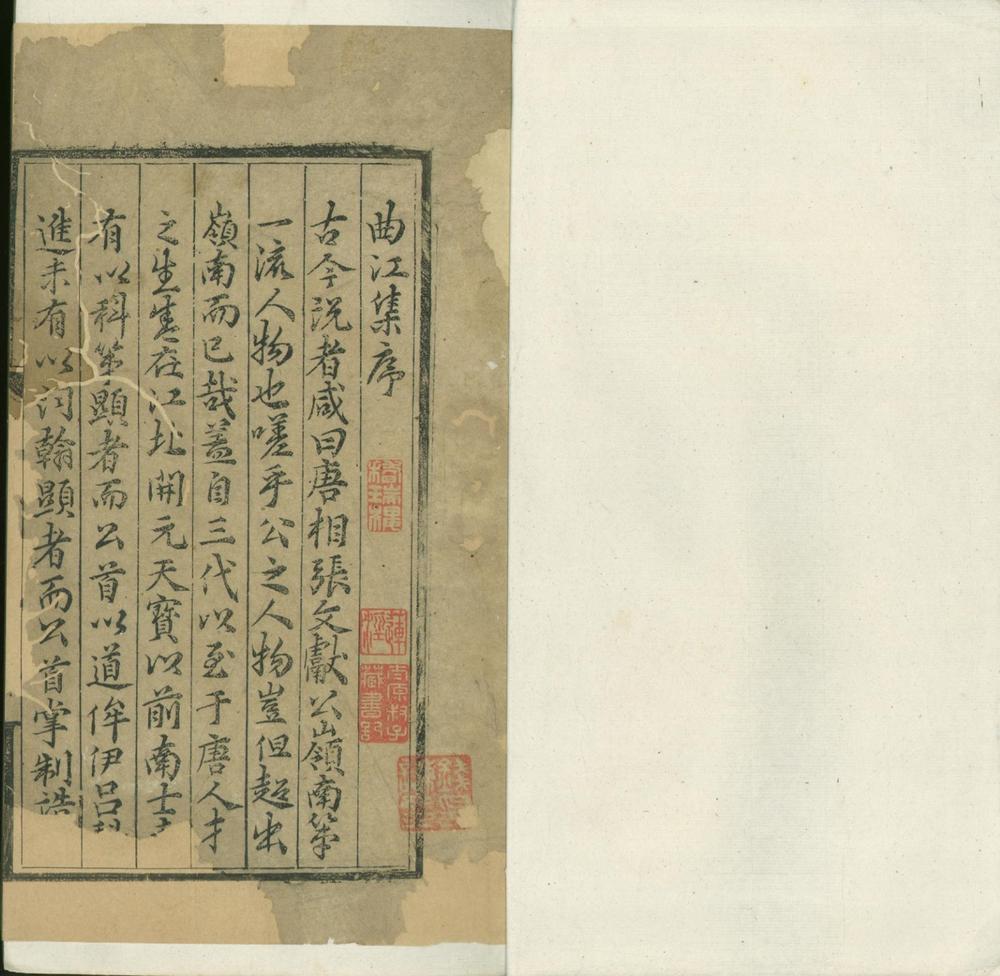 曲江集序
古今説者咸曰唐相張文獻公嶺南第
一流人物也嗟乎公之人物豈但超出
嶺南而已哉蓋自三代以至于唐人才
之生盛在江北開元天寶以前南士
有以科第顯者而公首以道侔伊吕
進未有以詞翰顯者而公首掌制誥
藏書記